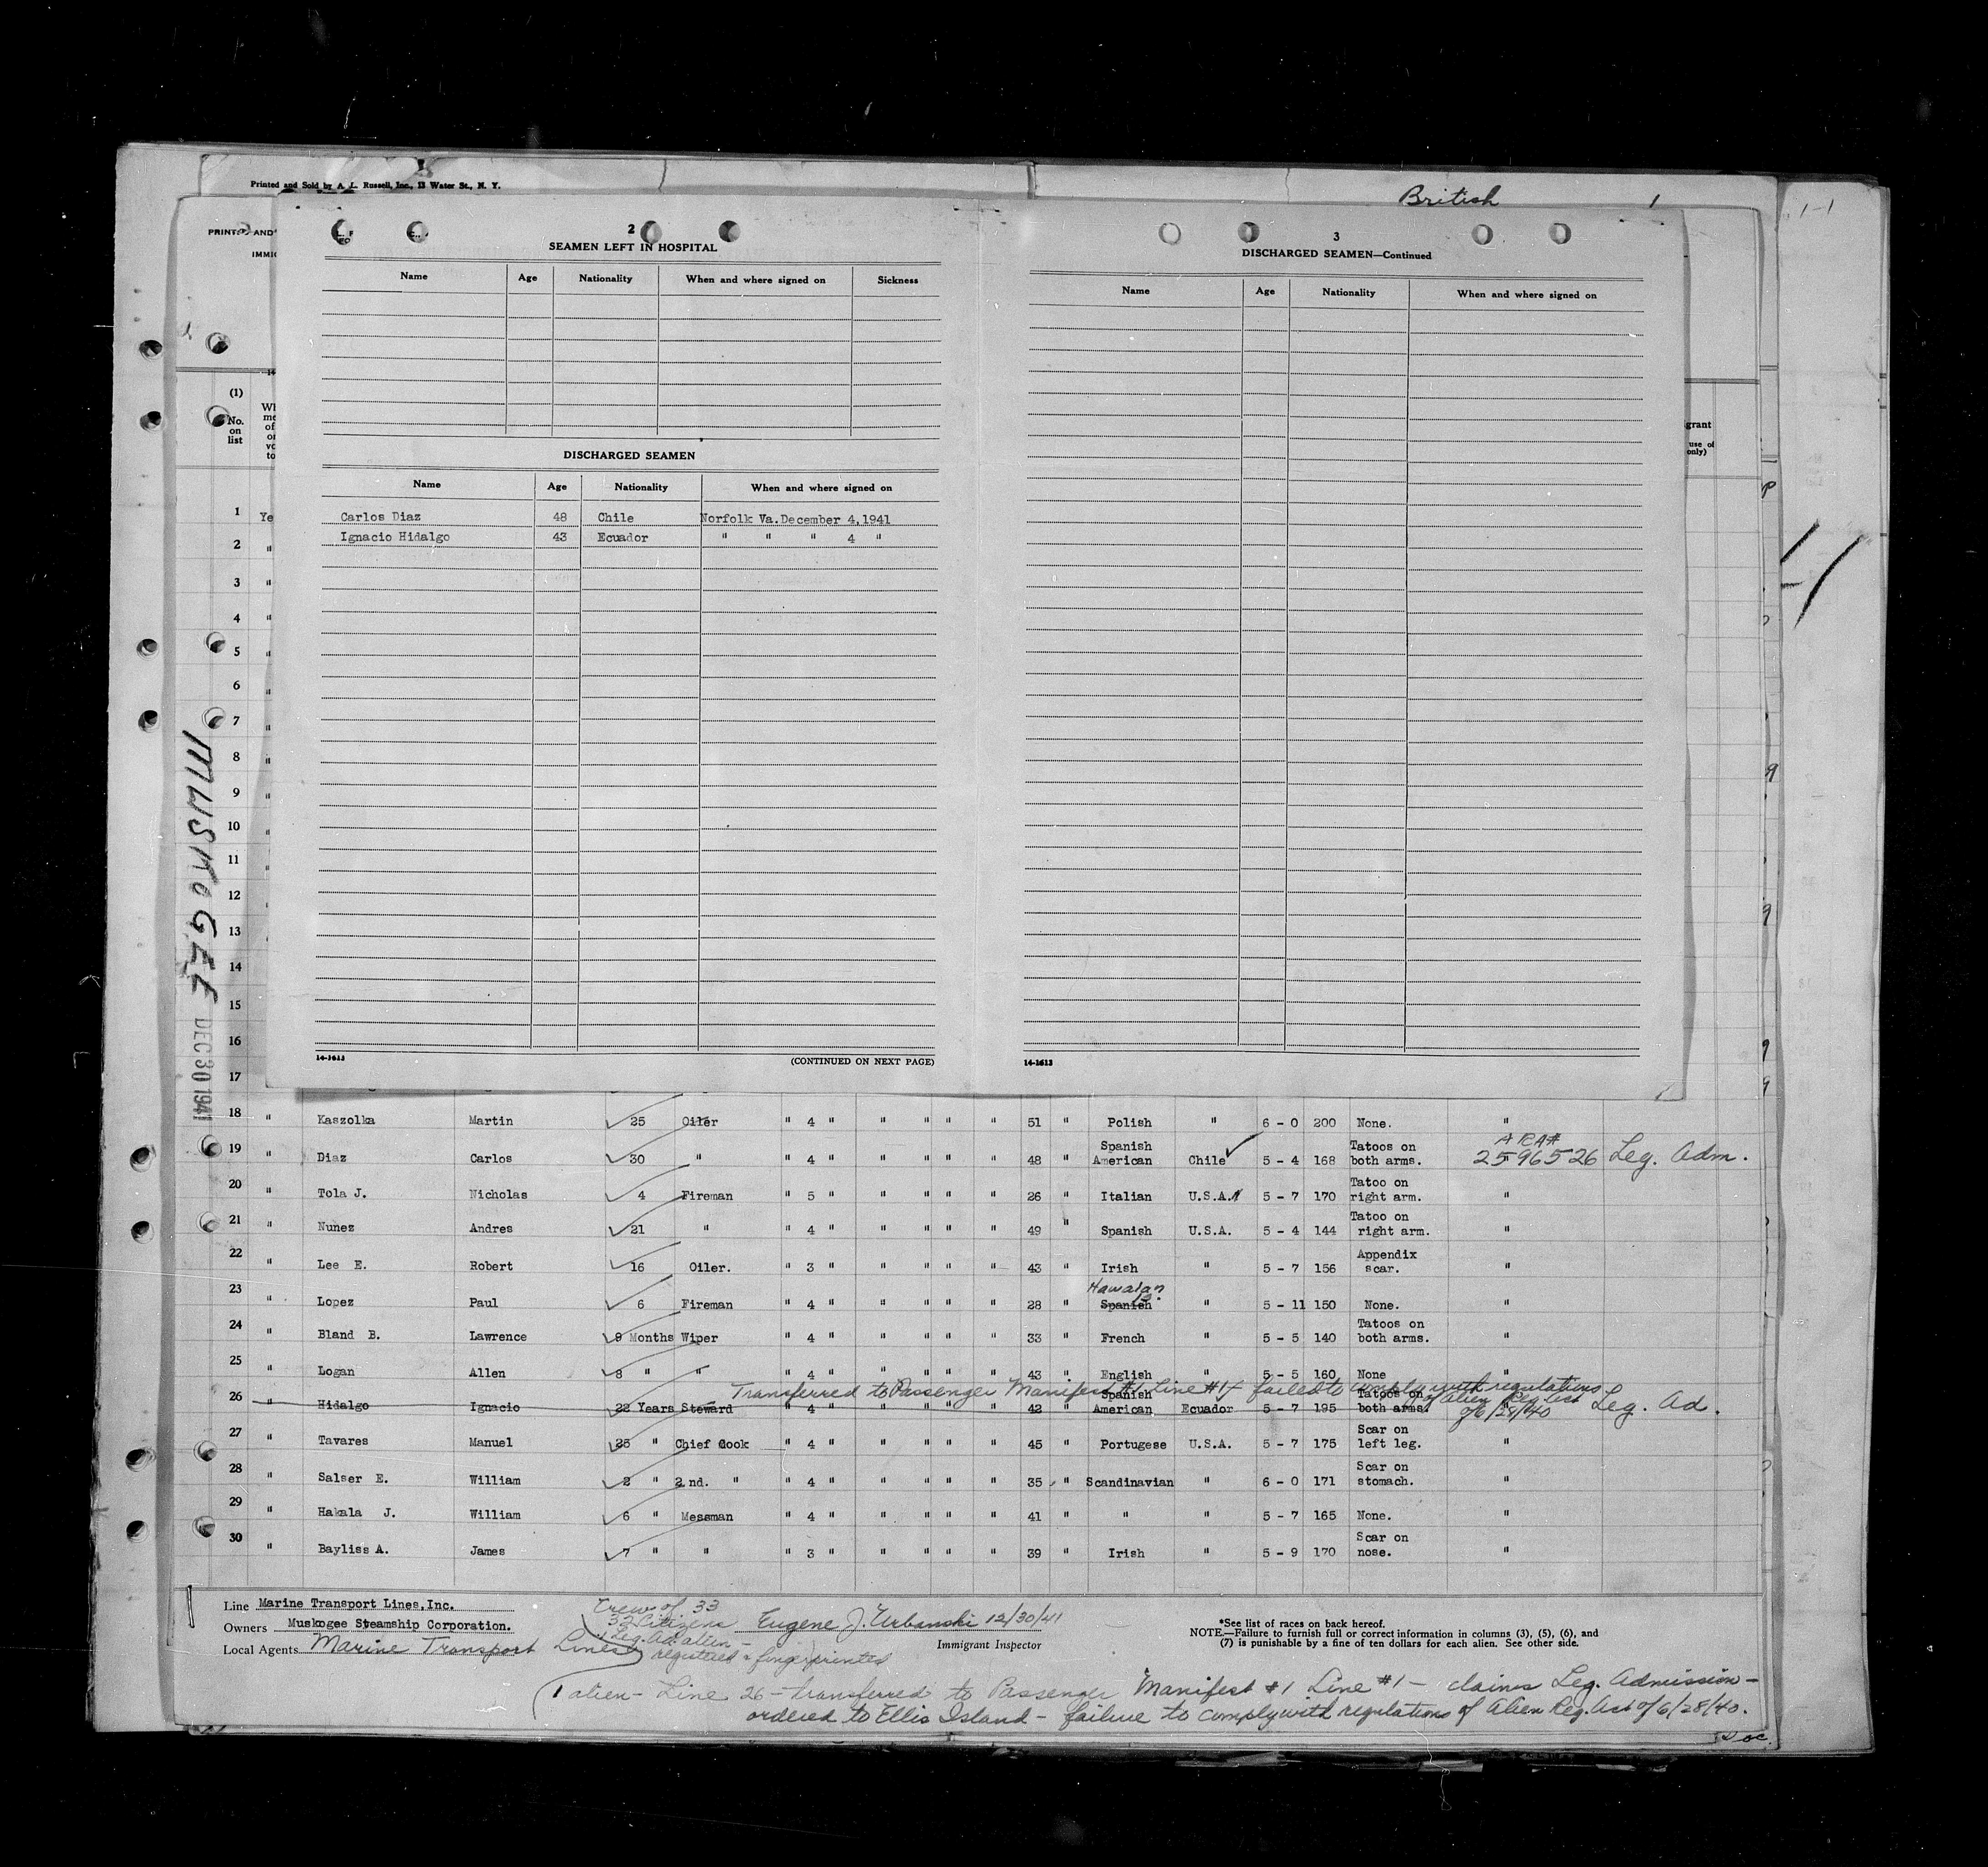 Printed and Sold by A. L. Russell, Inc., 13 Water St., N. Y.
British
1
1-1
PRINT AND
IMMIG
2
SEAMEN LEFT IN HOSPITAL
Name Age Nationality When and where signed on Sickness
DISCHARGED SEAMEN
Name Age Nationality When and where signed on
Carlos Diaz 48 Chile Norfolk Va. December 4, 1941
Ignacio Hidalgo 43 Ecuador " " " 4 "
14-1613
(CONTINUED ON NEXT PAGE)
3
DISCHARGED SEAMEN—Continued
Name Age Nationality When and where signed on
14-1613
(1)
No.
on
list
grant
use of
only)
1 Ye
2 "
3 "
4 "
5 "
6 "
7 "
8 "
9 "
10 "
11 "
12 "
13
14
15
16
17
MUSKOGEE
DEC 30 1941
18 " Kaszolka Martin 25 Oiler " 4 " " " " " 51 " Polish " 6 - 0 200 None. "
19 " Diaz Carlos 30 " " 4 " " " " " 48 " Spanish American Chile 5 - 4 168 Tatoos on both arms. 2596526 Leg. Adm.
20 " Tola J. Nicholas 4 Fireman " 5 " " " " " 26 " Italian U.S.A. 5 - 7 170 Tatoo on right arm. "
21 " Nunez Andres 21 " " 4 " " " " " 49 " Spanish U.S.A. 5 - 4 144 Tatoo on right arm. "
22 " Lee E. Robert 16 Oiler. " 3 " " " " " 43 " Irish " 5 - 7 156 Appendix scar. "
23 " Lopez Paul 6 Fireman " 4 " " " " " 28 " Hawaian Spanish " 5 - 11 150 None. "
24 " Bland B. Lawrence 9 Months Wiper " 4 " " " " " 33 " French " 5 - 5 140 Tatoos on both arms. "
25 " Logan Allen 8 " " " 4 " " " " " 43 " English " 5 - 5 160 None "
Transferred to Passenger Manifest #1 Line #1 failed to comply with regulations of Alien Reg. Act of 6/28/40
26 " Hidalgo Ignacio 22 Years Steward " 4 " " " " " 42 " Spanish American Ecuador 5 - 7 195 Tatoos on both arms. Leg. Ad.
27 " Tavares Manuel 25 " Chief Cook " 4 " " " " " 45 " Portugese U.S.A. 5 - 7 175 Scar on left leg. "
28 " Salser E. William 2 " 2nd. " " 4 " " " " " 35 " Scandinavian " 6 - 0 171 Scar on stomach. "
29 " Hakala J. William 6 " Messman " 4 " " " " " 41 " " " 5 - 7 165 None. "
30 " Bayliss A. James 7 " " " 3 " " " " " 39 " Irish " 5 - 9 170 Scar on nose. "
Line Marine Transport Lines, Inc.
Owners Muskogee Steamship Corporation.
Local Agents Marine Transport Lines
Crew of 33
32 Citizens
1 Leg. Ad. alien -
registered & fingerprinted
Eugene J. Urbanski 12/30/41
Immigrant Inspector
*See list of races on back hereof.
NOTE.—Failure to furnish full or correct information in columns (3), (5), (6), and
(7) is punishable by a fine of ten dollars for each alien. See other side.
1 alien - Line 26 - transferred to Passenger Manifest #1 Line #1 - claims Leg. Admission -
ordered to Ellis Island - failure to comply with regulations of Alien Reg. Act of 6/28/40.